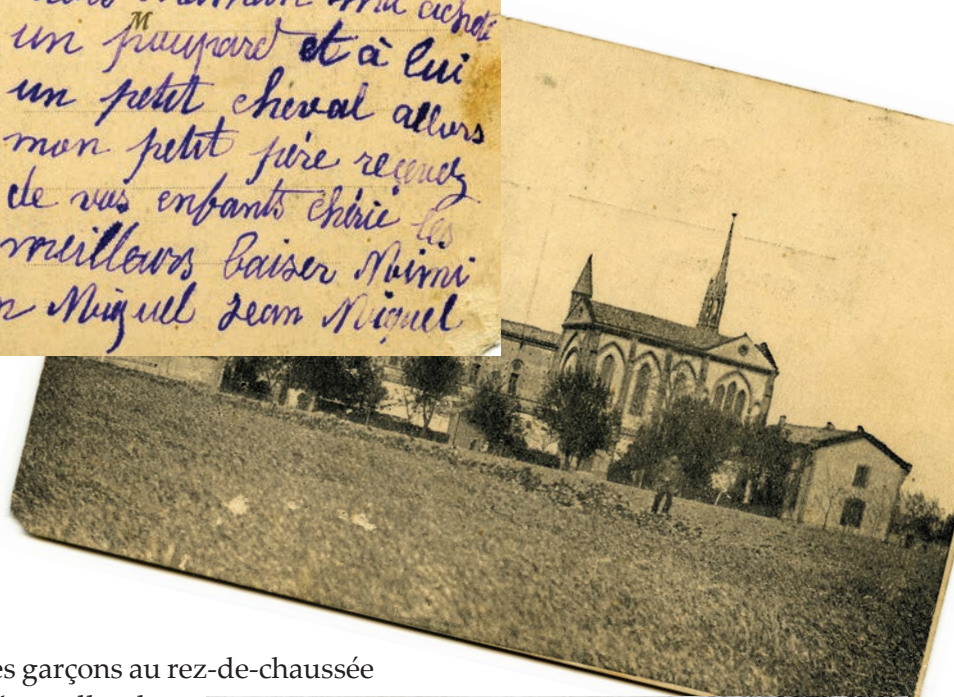 maman m'a acheté
M
un poupard et à lui
un petit cheval allors
mon petit père reçevez
de vos enfants chérie les
meilleurs baiser Noimi
n Miguel Jean Miguel
es garçons au rez-de-chaussée